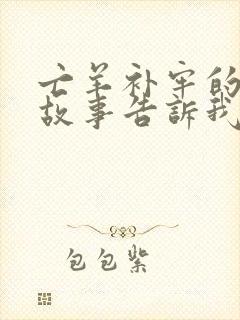 亡羊补牢的
故事告訴我
包包紫